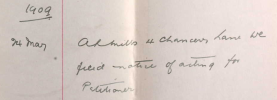 1909
24 May
Ad Mills 4 Chancery Lane WC
filed notice of acting for
Petitioner